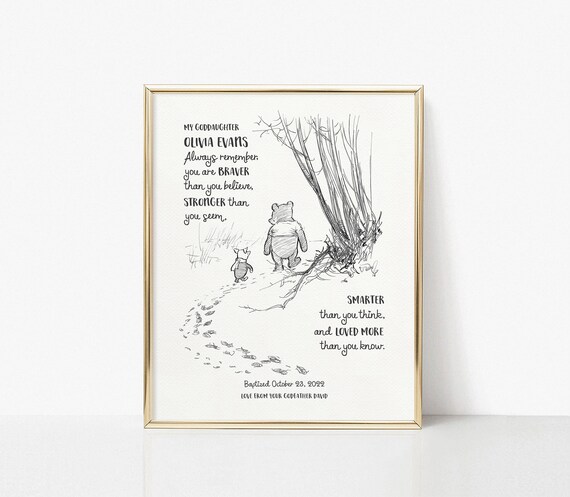 MY GODDAUGHTER
OLIVIA EVANS
Always remember
you are BRAVER
than you believe,
STRONGER than
you seem,
SMARTER
than you think,
and LOVED MORE
than you know.
Baptized October 23, 2022
LOVE FROM YOUR GODFATHER DAVID